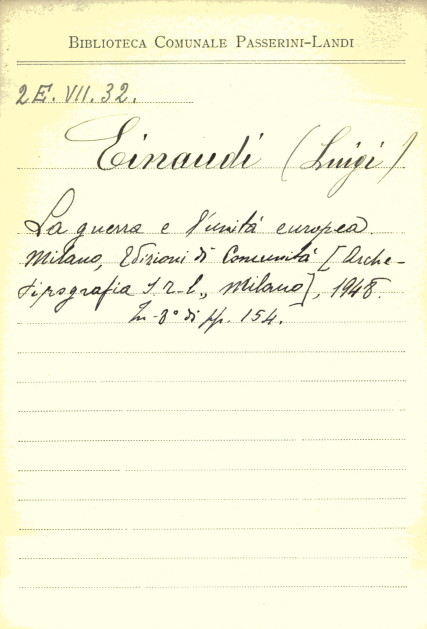 BIBLIOTECA COMUNALE PASSERINI-LANDI
2E. VII. 32.
Einaudi (Luigi)
La guerra e l'unità europea.
Milano, Edizioni di Comunità [Arche-
tipografia S.r.l., Milano], 1948.
In-8° di pp. 154.